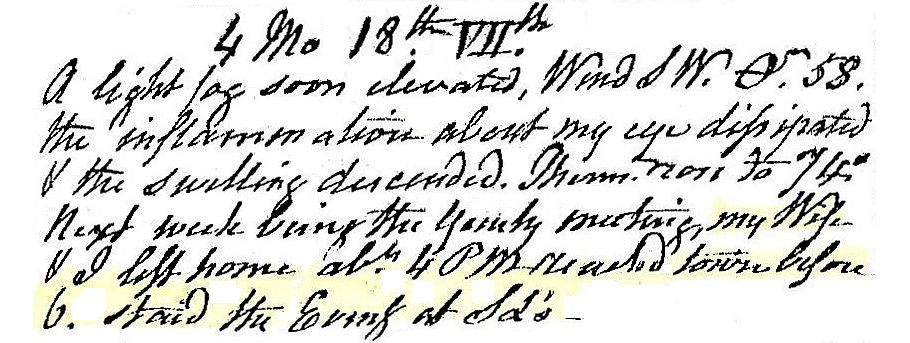 4 Mo 18.th VII.th
A light fog soon elevated, Wind S W. 58.
the inflammation about my eye dissipated
& the swelling descended. Therm. rose to 74°
Next week being the Yearly meeting, my Wife
& I left home abt. 4 PM reached town before
6. staid the Eveng at Sd's –